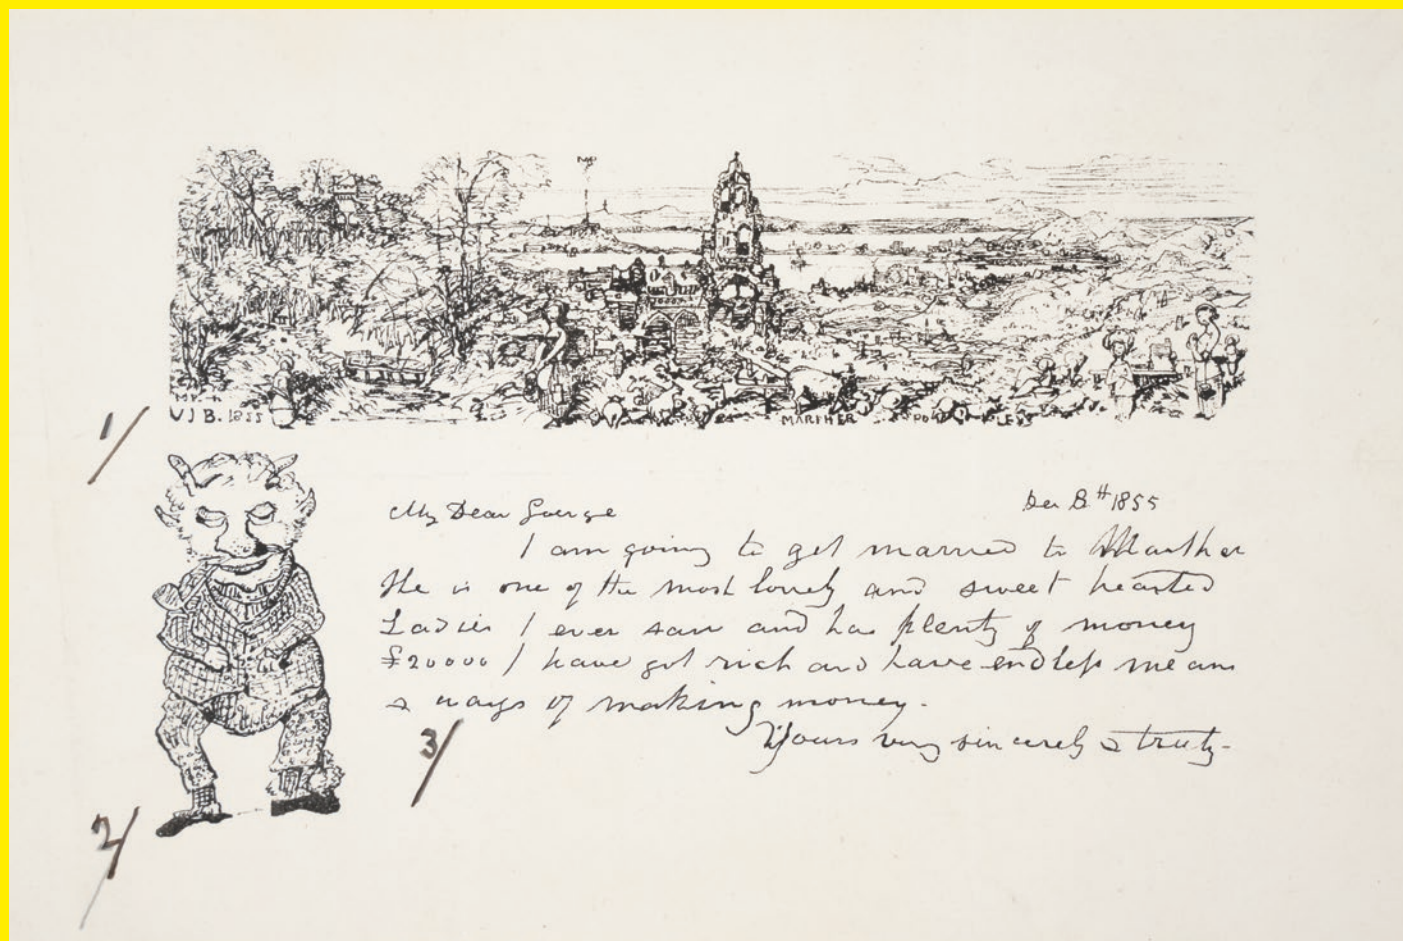 V J B. 1855
MARTHER
1/
My Dear George
Dec 8th 1855
I am going to get married to Marther
She is one of the most lovely and sweet hearted
Ladies I ever saw and has plenty of money
£20000 I have got rich and have endless means
& ways of making money.
Yours very sincerely & truly
3/
2/